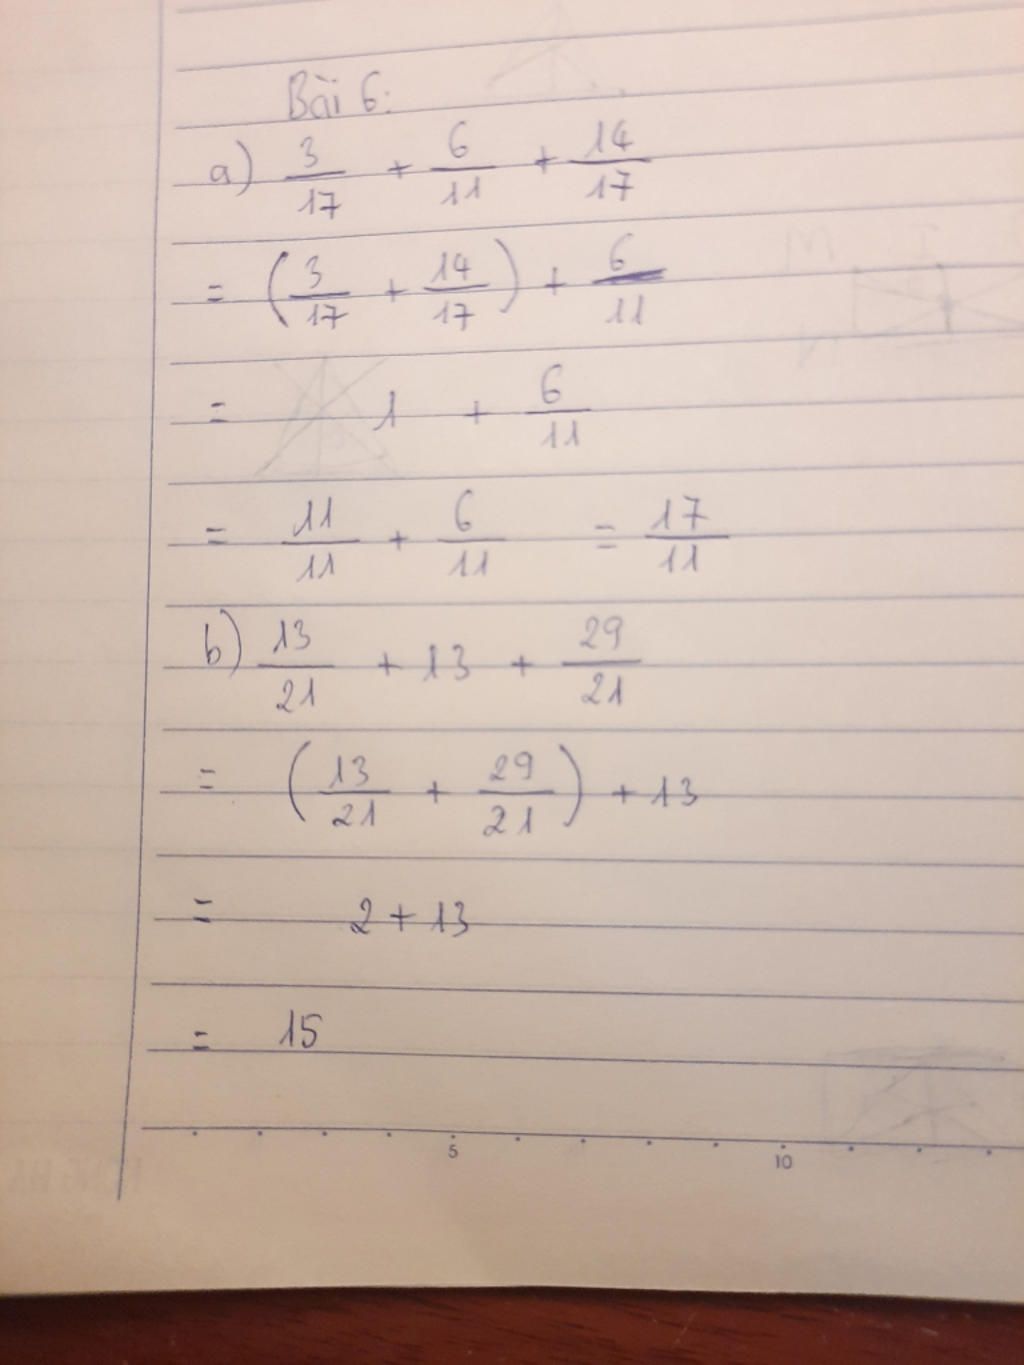 Bài 6:
a) 3/17 + 6/11 + 14/17
= (3/17 + 14/17) + 6/11
= 1 + 6/11
= 11/11 + 6/11 = 17/11
b) 13/21 + 13 + 29/21
= (13/21 + 29/21) + 13
= 2 + 13
= 15
5 10